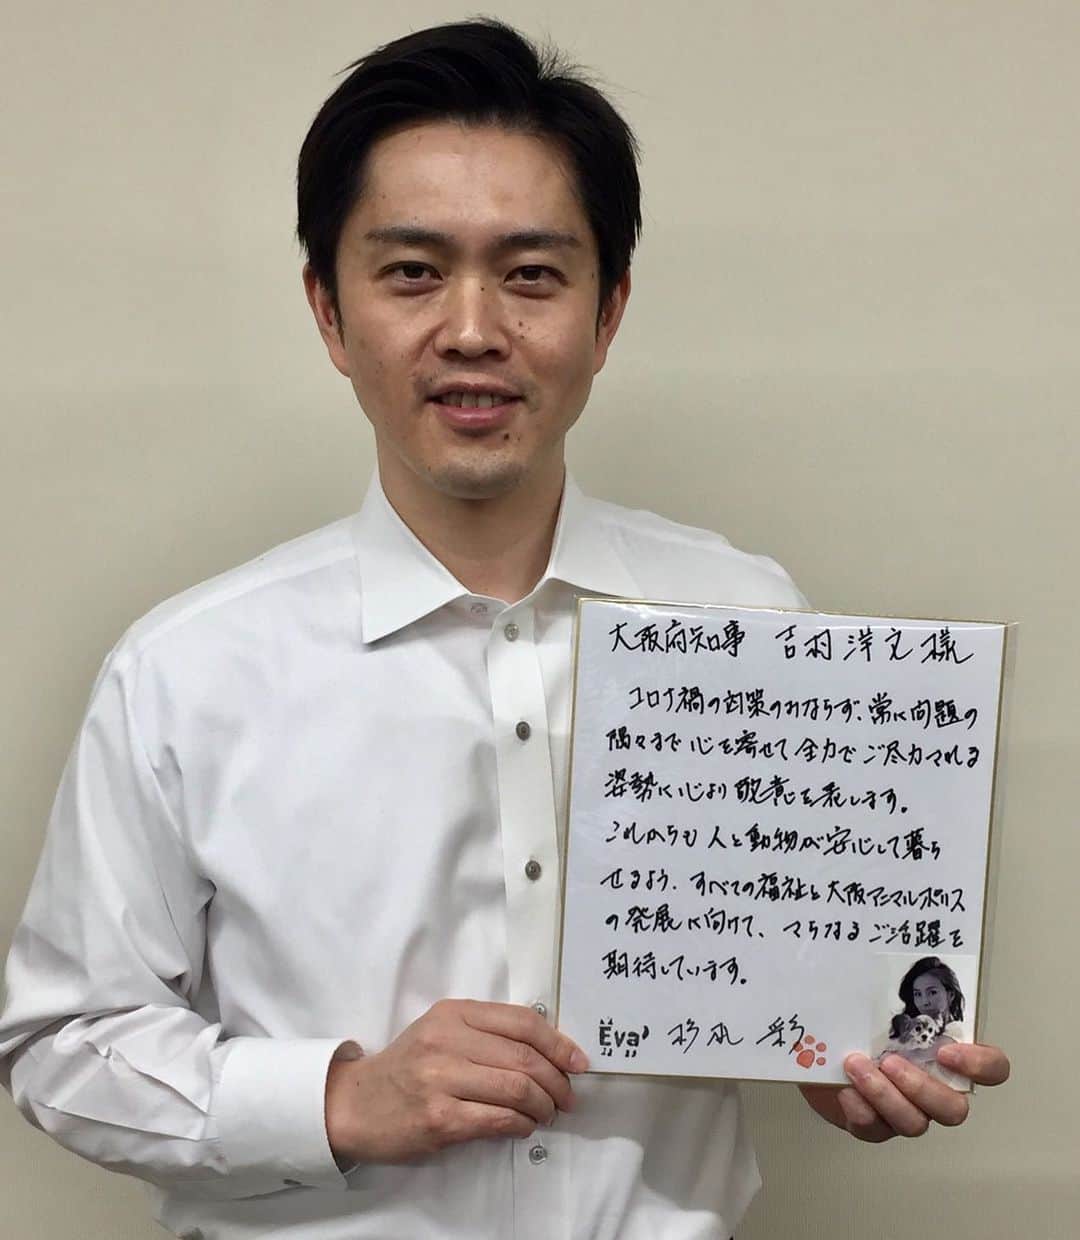 大阪府知事 吉村洋文様
コロナ禍の対策のみならず、常に問題の
隅々まで心を寄せて全力でご尽力される
姿勢に心より敬意を表します。
これからも人と動物が安心して暮ら
せるよう、すべての福祉と大阪アニマルポリス
の発展に向けて、さらなるご活躍を
期待しています。
Eva 杉本 彩